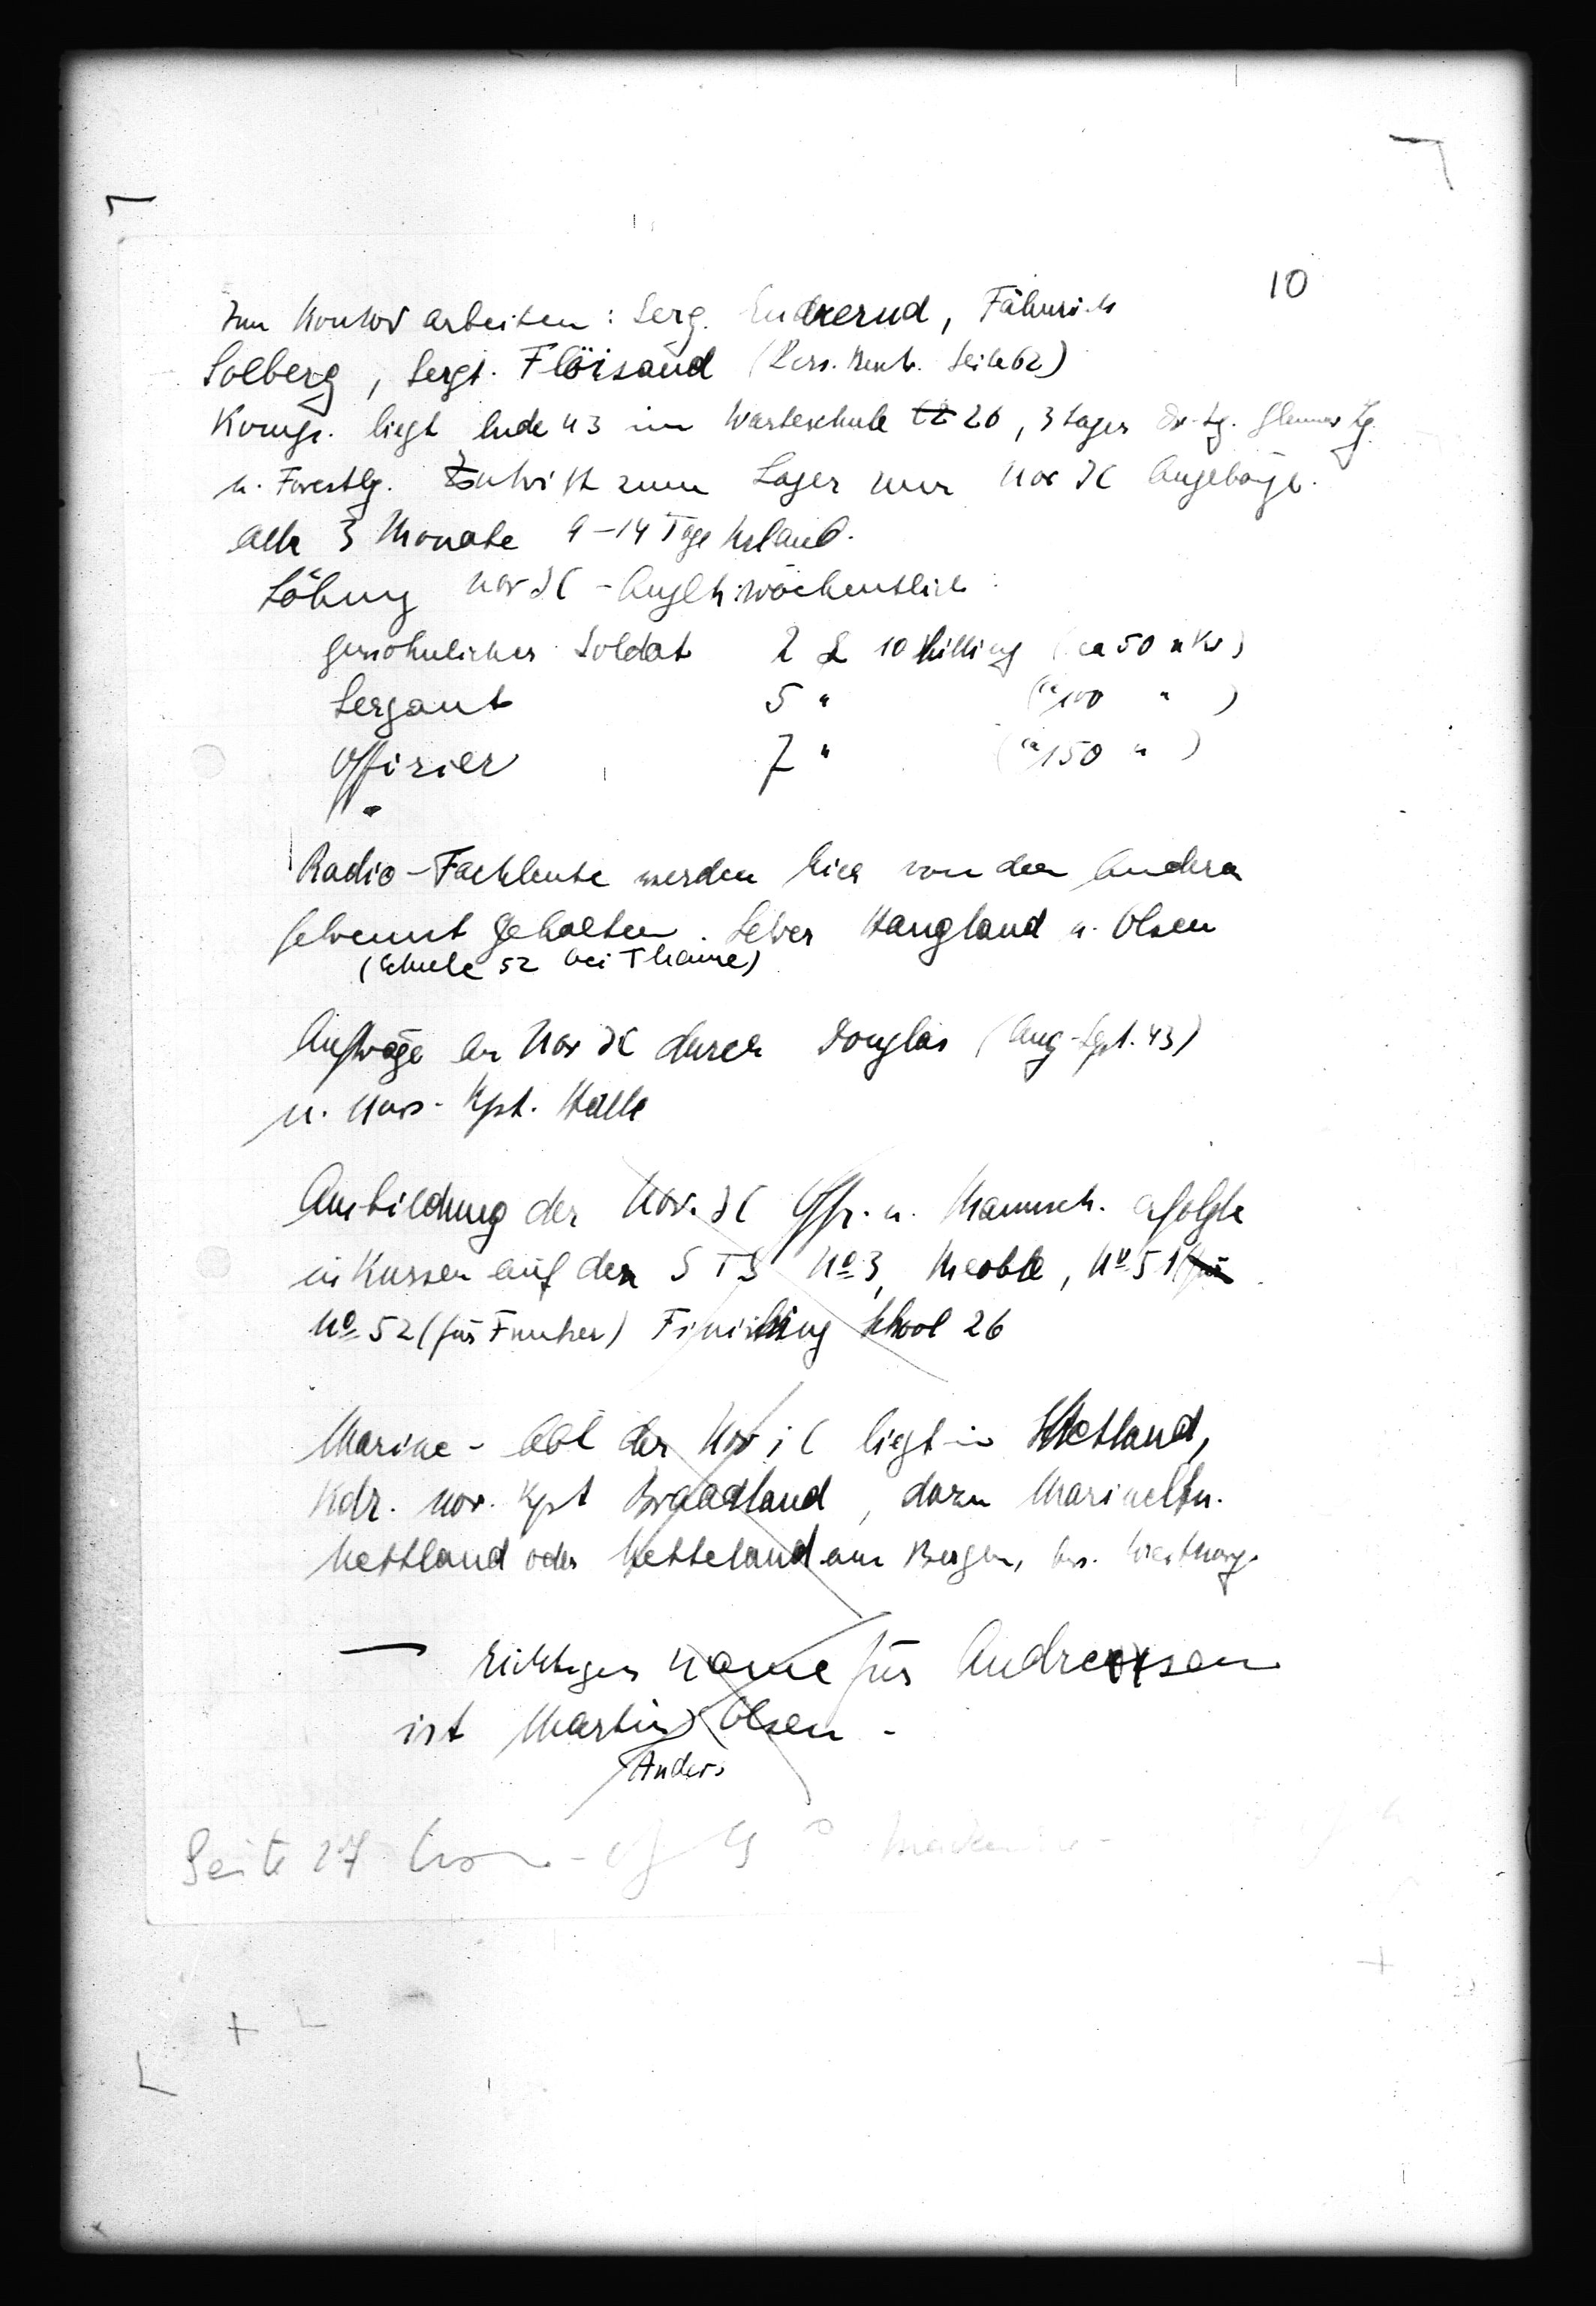 10
Im Kontor arbeiten: Serg. Endrerud, Fähnrich
Solberg, Sergt. Flöisand (Pers. Besch. Seite 62)
Komp. liegt Ende 43 im Warteschule 26, 3 Lager Dr. Lg. Glenmor Lg.
u. Forestlg. Zutritt zum Lager nur Nor IC Angehörige.
alle 3 Monate 9-14 Tage Urlaub.
Löhnung Nor IC - Angeh. wöchentlich:
gewöhnlicher Soldat 2 £ 10 Shilling (ca 50 nKr)
Sergant 5 " (ca 100 " )
Offizier 7 " (ca 150 " )
Radio-Fachleute werden hier von den Andern
getrennt gehalten. Lehrer Haugland u. Olsen
(Schule 52 bei Thame)
Aufträge an Nor IC durch Douglas (Aug-Sept. 43)
u. Kpt. Helle
Ausbildung der Nor. IC Offz. u. Mannsch. erfolgte
in Kursen auf den STS No 3, Meoble, No 51 (für
No 52 (für Funker) Finishing School 26
Marine - Abt der Nor i C liegt in Shetland,
Kdr. nor. Kpt Braadland, dazu Marineltn.
Nettland oder Netteland aus Bergen, bes. Westnorg.
— richtiger Name für Andreassen
ist Martin Olsen -
Anders
Seite 27